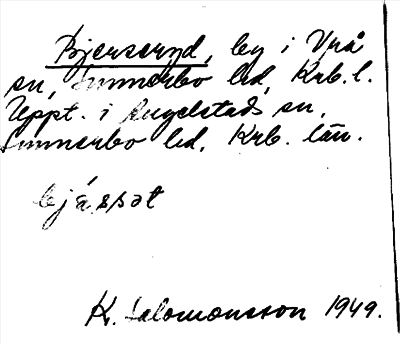 Bjerseryd, by i Vrå
sn, Sunnerbo hd, Krb. l.
Uppt. i Angelstads sn,
Sunnerbo hd, Krb. län.
bjásşət
K. Salomonsson 1949.